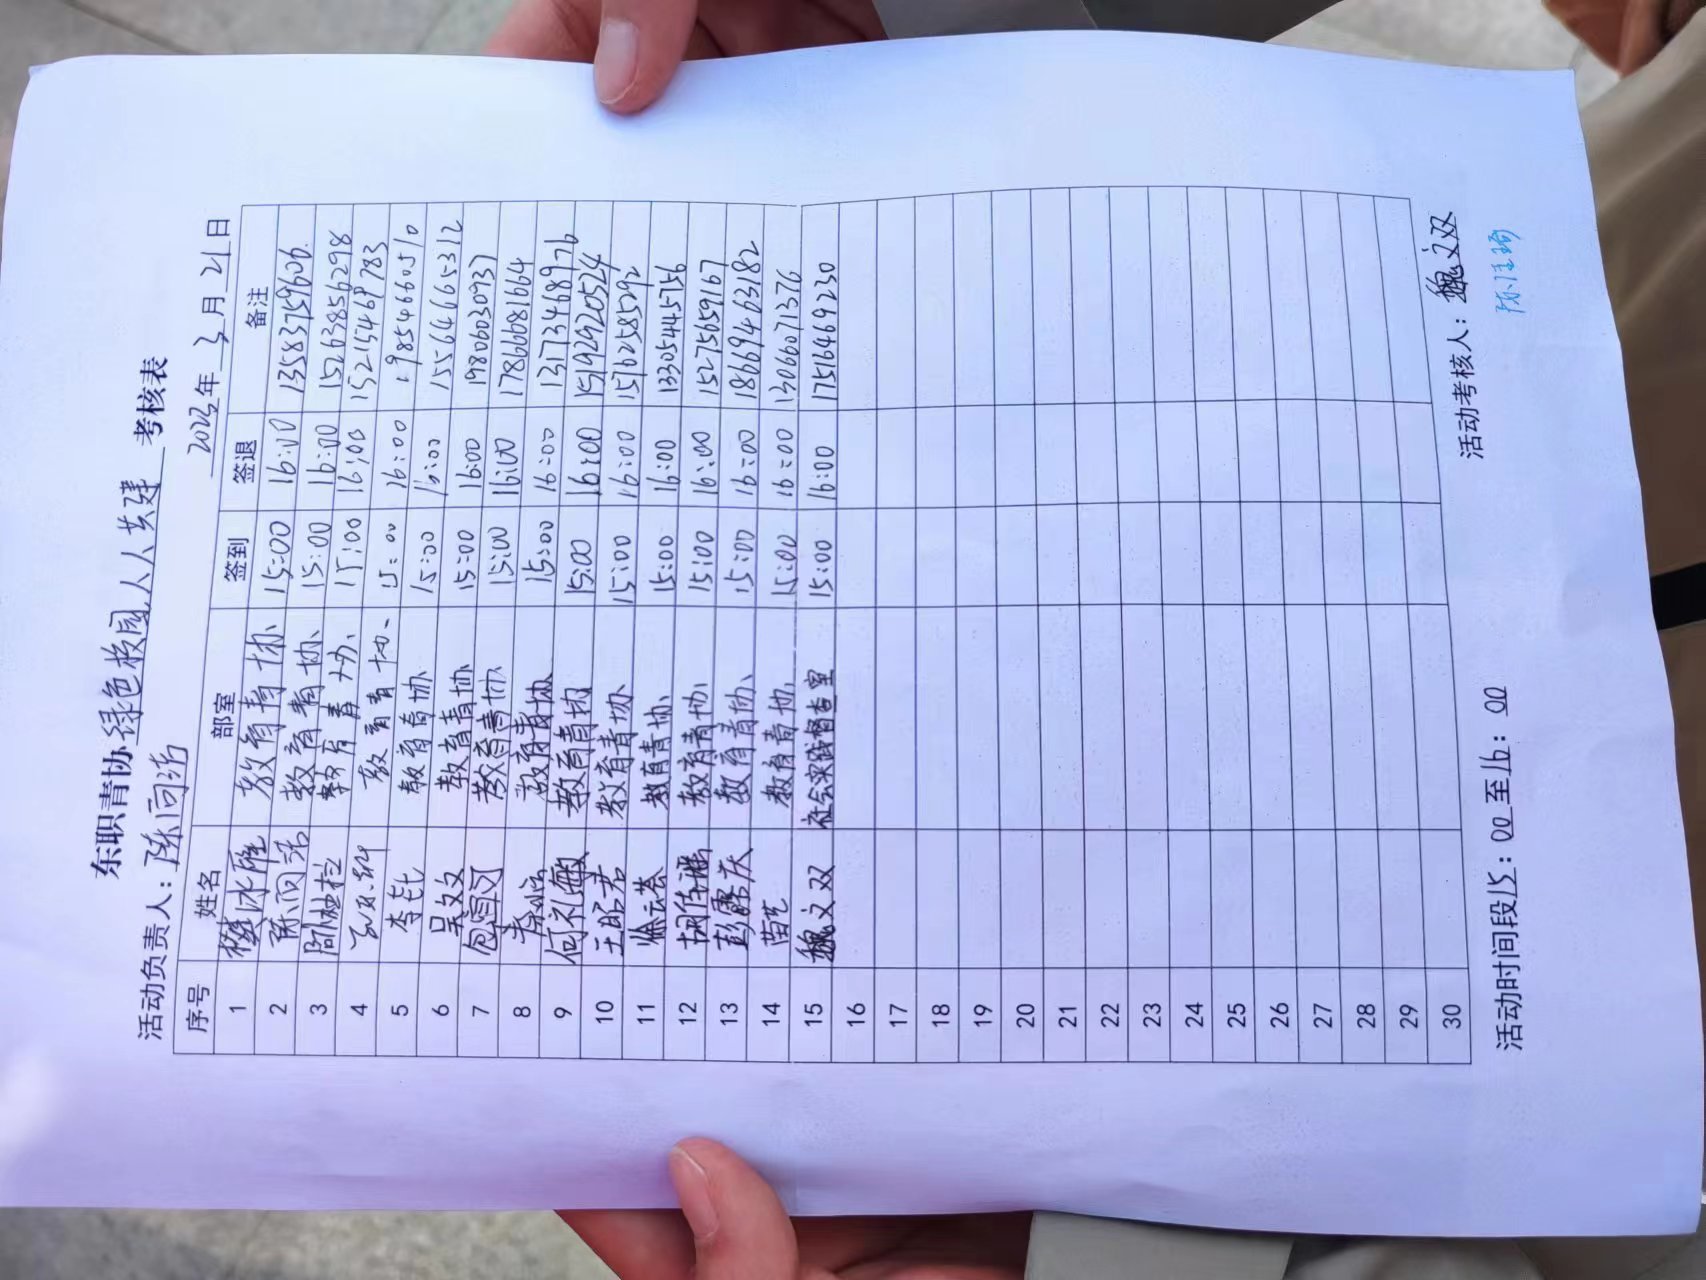 东职青协 绿色校园,人人共建 考核表
活动负责人: 陈同活 2023年 3 月 21 日
序号 姓名 部室 签到 签退 备注
1 樊冰雁 教育青协、 15:00 16:00 13583759606
2 陈同活 教育青协、 15:00 16:00 15263856298
3 教育青办、 15:00 16:00 15215468783
4 教育青协、 15:00 16:00 19854660510
5 教育青协 15:00 16:00 15564665312
6 吴文文 教育青协 15:00 16:00 19806030937
7 教育青协、 15:00 16:00 17860681664
8 教育青协 15:00 16:00 13173468976
9 何礼敏 教育青协 15:00 16:00 15192920524
10 王昭君 教育青协、 15:00 16:00 15762585292
11 徐云荟 教育青协、 15:00 16:00 13305445756
12 教育青协、 15:00 16:00 15275659167
13 彭露庆 教育青协、 15:00 16:00 18669463182
14 苗艺 教育青协、 15:00 16:00 13066071376
15 魏文双 社会实践督查室 15:00 16:00 17516469230
16
17
18
19
20
21
22
23
24
25
26
27
28
29
30
活动考核人: 魏文双
活动时间段15: 00 至16: 00